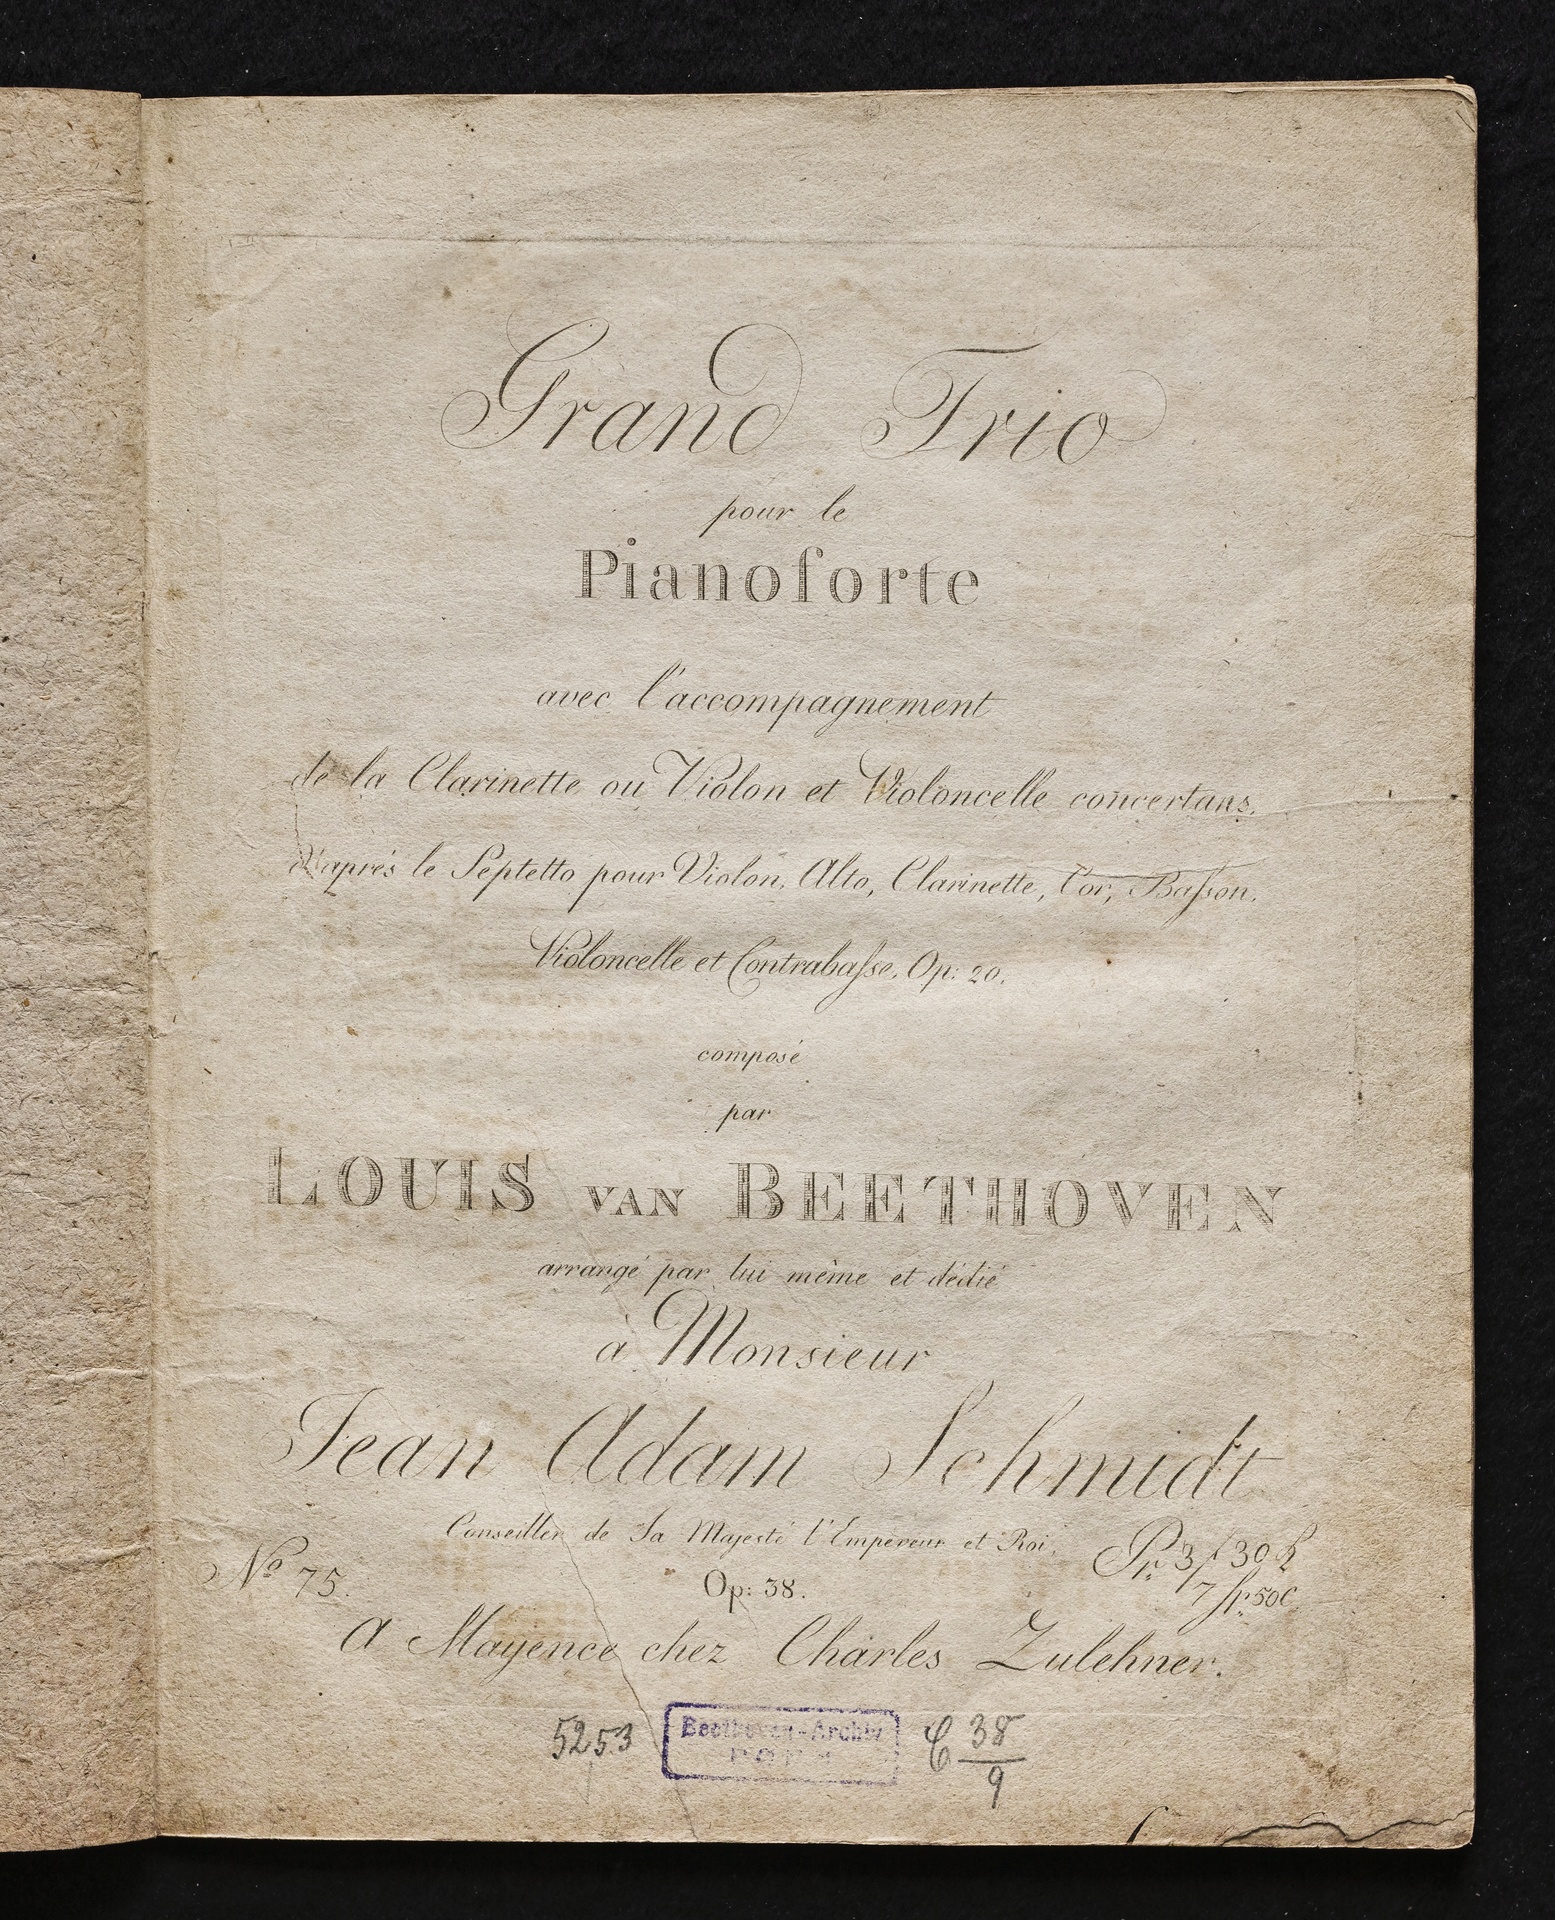 Grand Trio
pour le
Pianoforte
avec l'accompagnement
de la Clarinette ou Violon et Violoncelle concertans.
d'aprés le Septetto pour Violon, Alto, Clarinette, Cor, Baſson,
Violoncelle et Contrabaſse, Op: 20.
composé
par
LOUIS VAN BEETHOVEN
arrangé par lui même et dédié
à Monsieur
Jean Adam Schmidt
Conseiller de Sa Majesté l'Empereur et Roi.
No 75.
Op: 38.
Pr. 3 f 30
7 fr. 50 C
A Mayence chez Charles Zulehner.
5253
Beethoven-Archiv
BONN
C 38/9